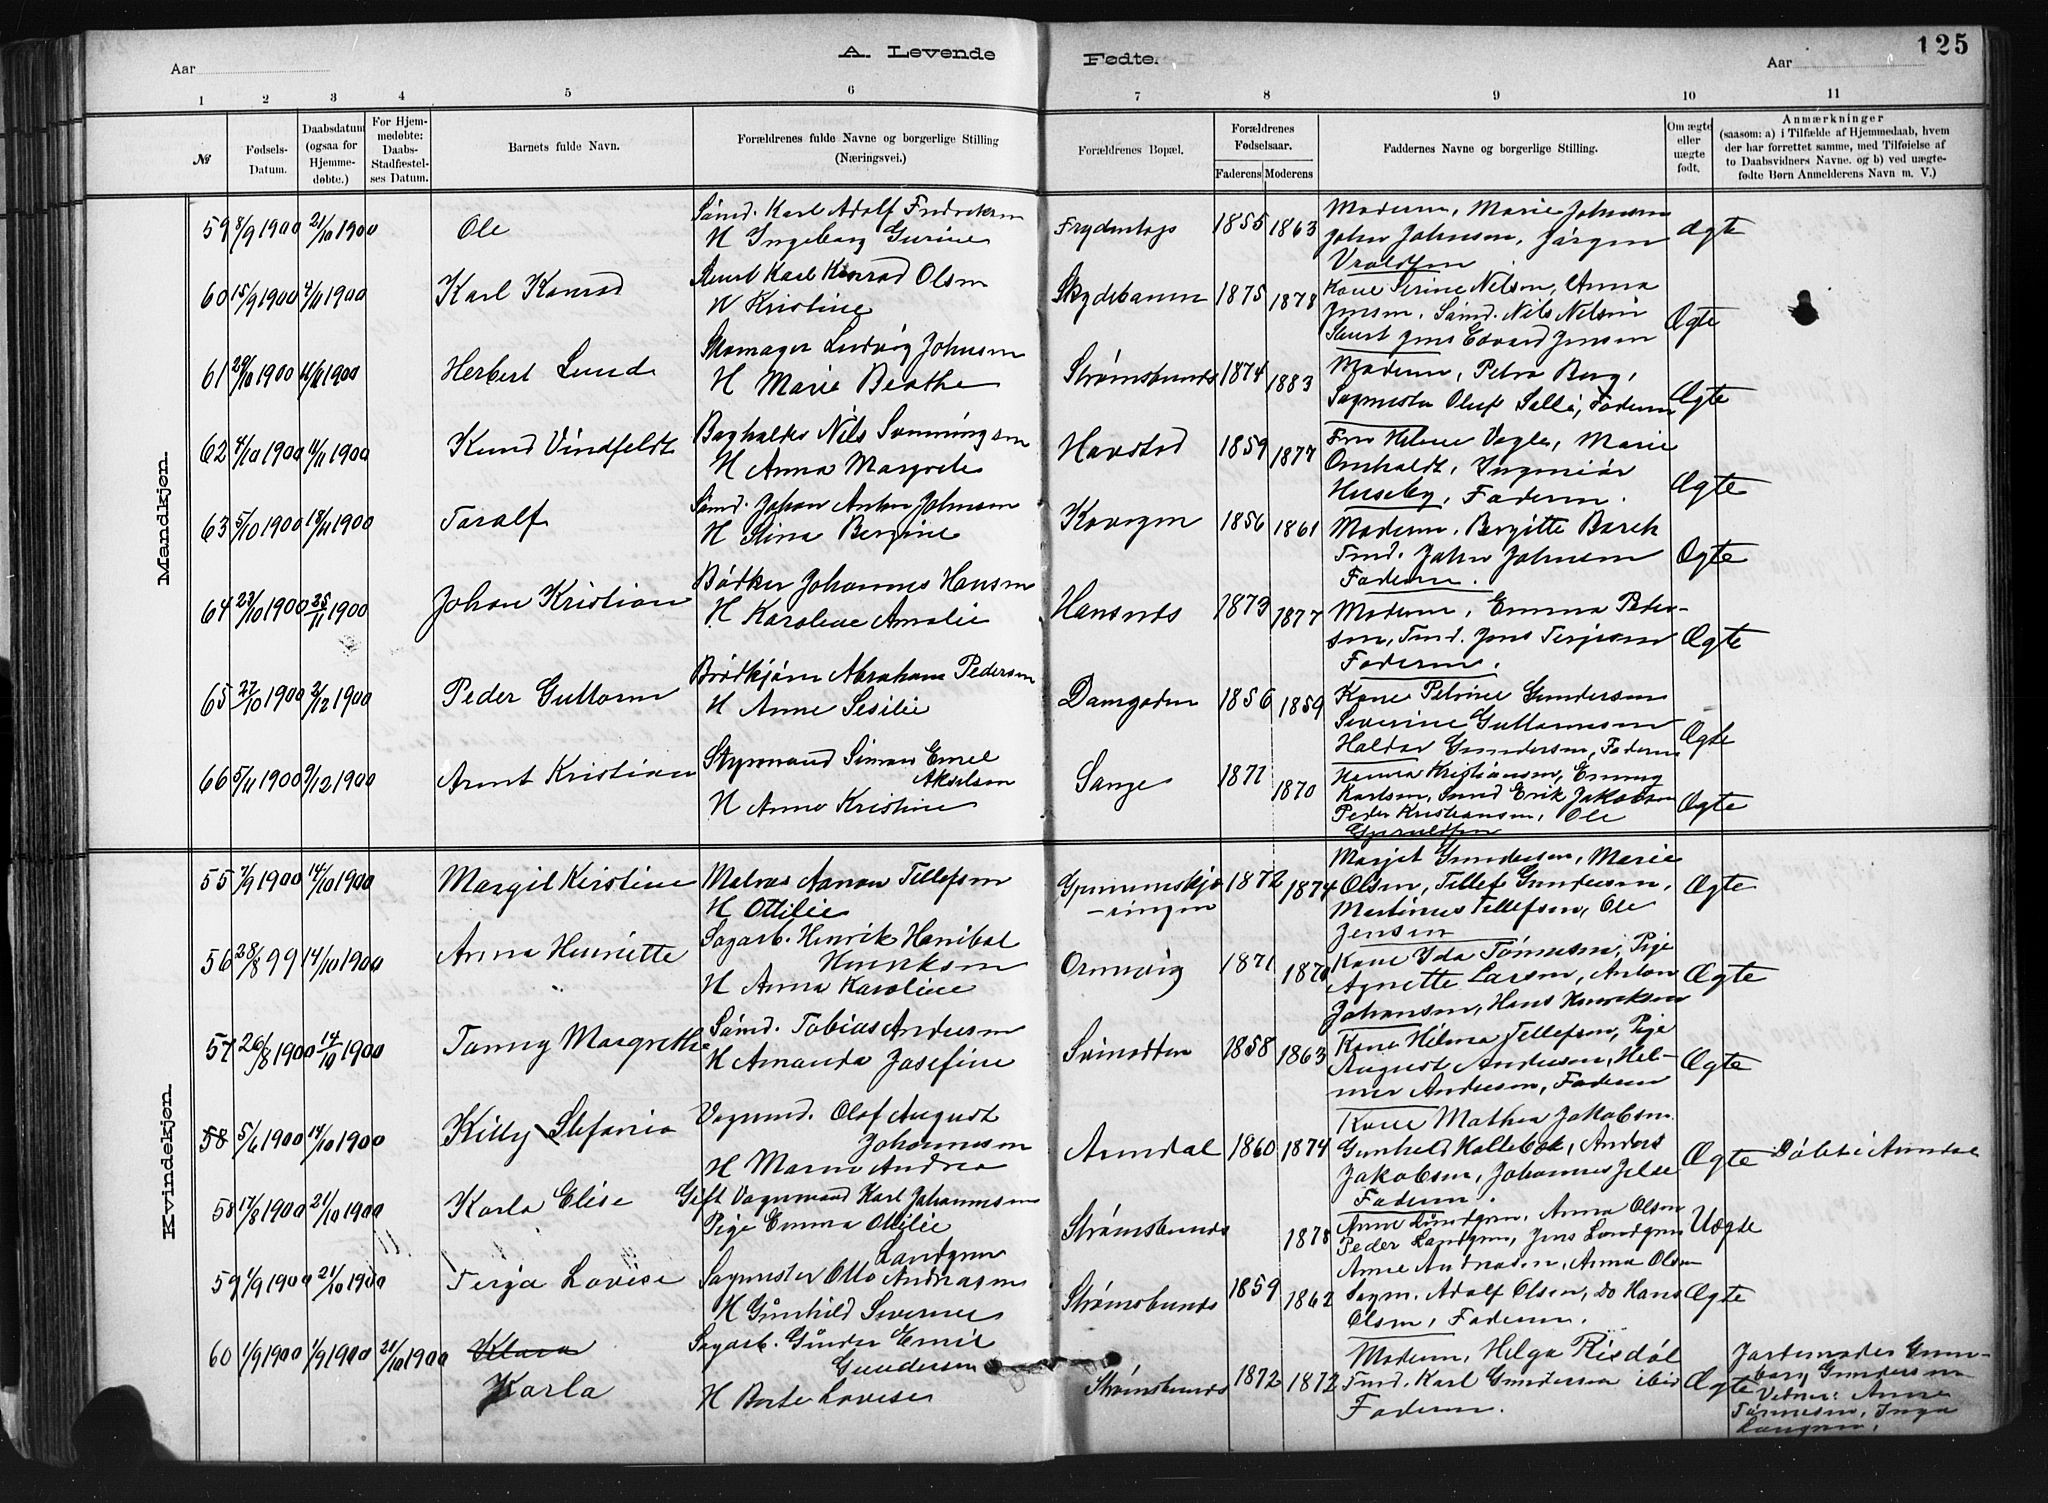 A. Levende Fødte. 125
Aar Aar
1 2 3 4 5 6 7 8 9 10 11
№
Fødsels-Datum.
Daabsdatum (ogsaa for Hjemmedøbte.)
For Hjemmedøbte: Daabs-Stadfæstelses Datum.
Barnets fulde Navn.
Forældrenes fulde Navne og borgerlige Stilling (Næringsvei.)
Forældrenes Bopæl.
Forældrenes Fødselsaar.
Faderens Moderens
Faddernes Navne og borgerlige Stilling.
Om ægte eller uægte født.
Anmærkninger
(saasom: a) i Tilfælde af Hjemmedaab, hvem der har forrettet samme, med Tilføielse af to Daabsvidners Navne. og b) ved uægtefødte Børn Anmelderens Navn m. V.)
Mandkjøn.
59 8/9 1900 21/10 1900 Ole
Sømd. Karl Adolf Fredriksen
H Ingeborg Gurine
1855 1863
Modern, Marie Johnsen
John Johnsen, Jørgen
Vroldsen
ægte
60 15/9 1900 4/11 1900 Karl Konrad
Karl Konrad Olsen
H Kristine
Skydebanen 1875 1878
Kone Serine Nilsen, Anna
Jensen, Sømd. Nils Nilsen
Jens Edvard Jensen
Ægte
61 29/10 1900 11/11 1900 Herbert Lund
Skomager Ludvig Johnsen
H Marie Beathe
Strømsbunds 1874 1883
Modern, Petra Berg,
Sagmester Oluf Salle, Fadern
Ægte
62 4/10 1900 11/11 1900 Knud Vindfeldt
Bogholder Nils Svenningsen
H Anna Margrete
Havstad 1859 1877
Fru Helene Vogle, Marie
Omholdt, Ingeniør
Huseby, Fadern.
Ægte
63 5/10 1900 18/11 1900 Taralf
Sømd. Johan Anton Johnsen
H Stina Bergine
1856 1861
Modern. Bergitte Barck
Tmd. John Johnsen
Fadern.
Ægte
64 23/10 1900 25/11 1900 Johan Kristian
Bødker Johannes Hansen
H Karoline Amalie
Hansnes 1873 1877
Modern, Emma Peder-
sen, Tmd. Jens Terjesen
Fadern.
Ægte
65 27/10 1900 2/12 1900 Peder Guttorm
Abraham Pedersen
H Anne Sesilie
Damgaden 1856 1859
Kone Petrine Gundersen
Severine Guttormsen
Haldor Gundersen, Fadern
Ægte
66 5/11 1900 9/12 1900 Arnt Kristian
Styrmand Simon Emil
Akselsen
H Anne Kristine
Sange 1871 1870
Hanna Kristiansen, Emmy
Karlsen, Sømd Erik Jakobsen
Peder Kristiansen, Ole
Ægte
Kvindekjøn.
55 7/9 1900 14/10 1900 Margit Kirstine
Matros Aanon Tellefsen
H Ottilie
1872 1874
Marjit Gundersen, Marie
Olsen, Tellef Gundersen,
Martinus Tellefsen, Ole
Jensen
Ægte
56 28/8 99 14/10 1900 Anna Henriette
Sagarb. Henrik Hanibal
Henriksen
H Anna Karoline
Ormvig 1871 1870
Kone Ida Tønnesen, Pige
Agnette Larsen, Anton
Johansen, Hans Henriksen
Ægte
57 26/8 1900 14/10 1900 Tanny Margrethe
Sømd. Tobias Andersen
H Amanda Josefine
Svinodden 1858 1863
Kone Hilma Tellefsen, Pige
August Andersen, Hel-
mer Andersen, Fadern
Ægte
58 5/6 1900 14/10 1900 Killy Stefania
Vognmd. Olaf August
Johannesen
H Maren Andrea
Arendal 1860 1874
Kone Mathea Jakobsen
Gunhild Hallebek, Anders
Jakobsen, Johannes
Fadern.
Ægte Døbt i Arendal
58 17/8 1900 21/10 1900 Karla Elise
Gift Vognmand Karl Johannesen
Pige Emma Ottilie
Landgren
Strømsbunds 1878
Anne Lundgren, Anna Olsen
Peder Landgren, Jens Lundgren
Uægte
59 1/9 1900 21/10 1900 Terja Lovise
Sagmester Otto Andreasen
H Gunhild Severine
Strømsbunds 1859 1862
Anne Andreasen, Anna Olsen
Sagm. Adolf Olsen, Do Hans
Olsen, Fadern.
Ægte
60 1/9 1900 1/9 1900 21/10 1900 Klara
Karla
Sagarb. Gunder Emil
Gundersen
H Berte Lovise
Strømsbunds 1872 1872
Modern, Helga Risdal
Tmd. Karl Gundersen ibid
Fadern.
Ægte
Jordemoder Gun-
borg Gundersen
Vidner: Anne
Tønnesen, Inga